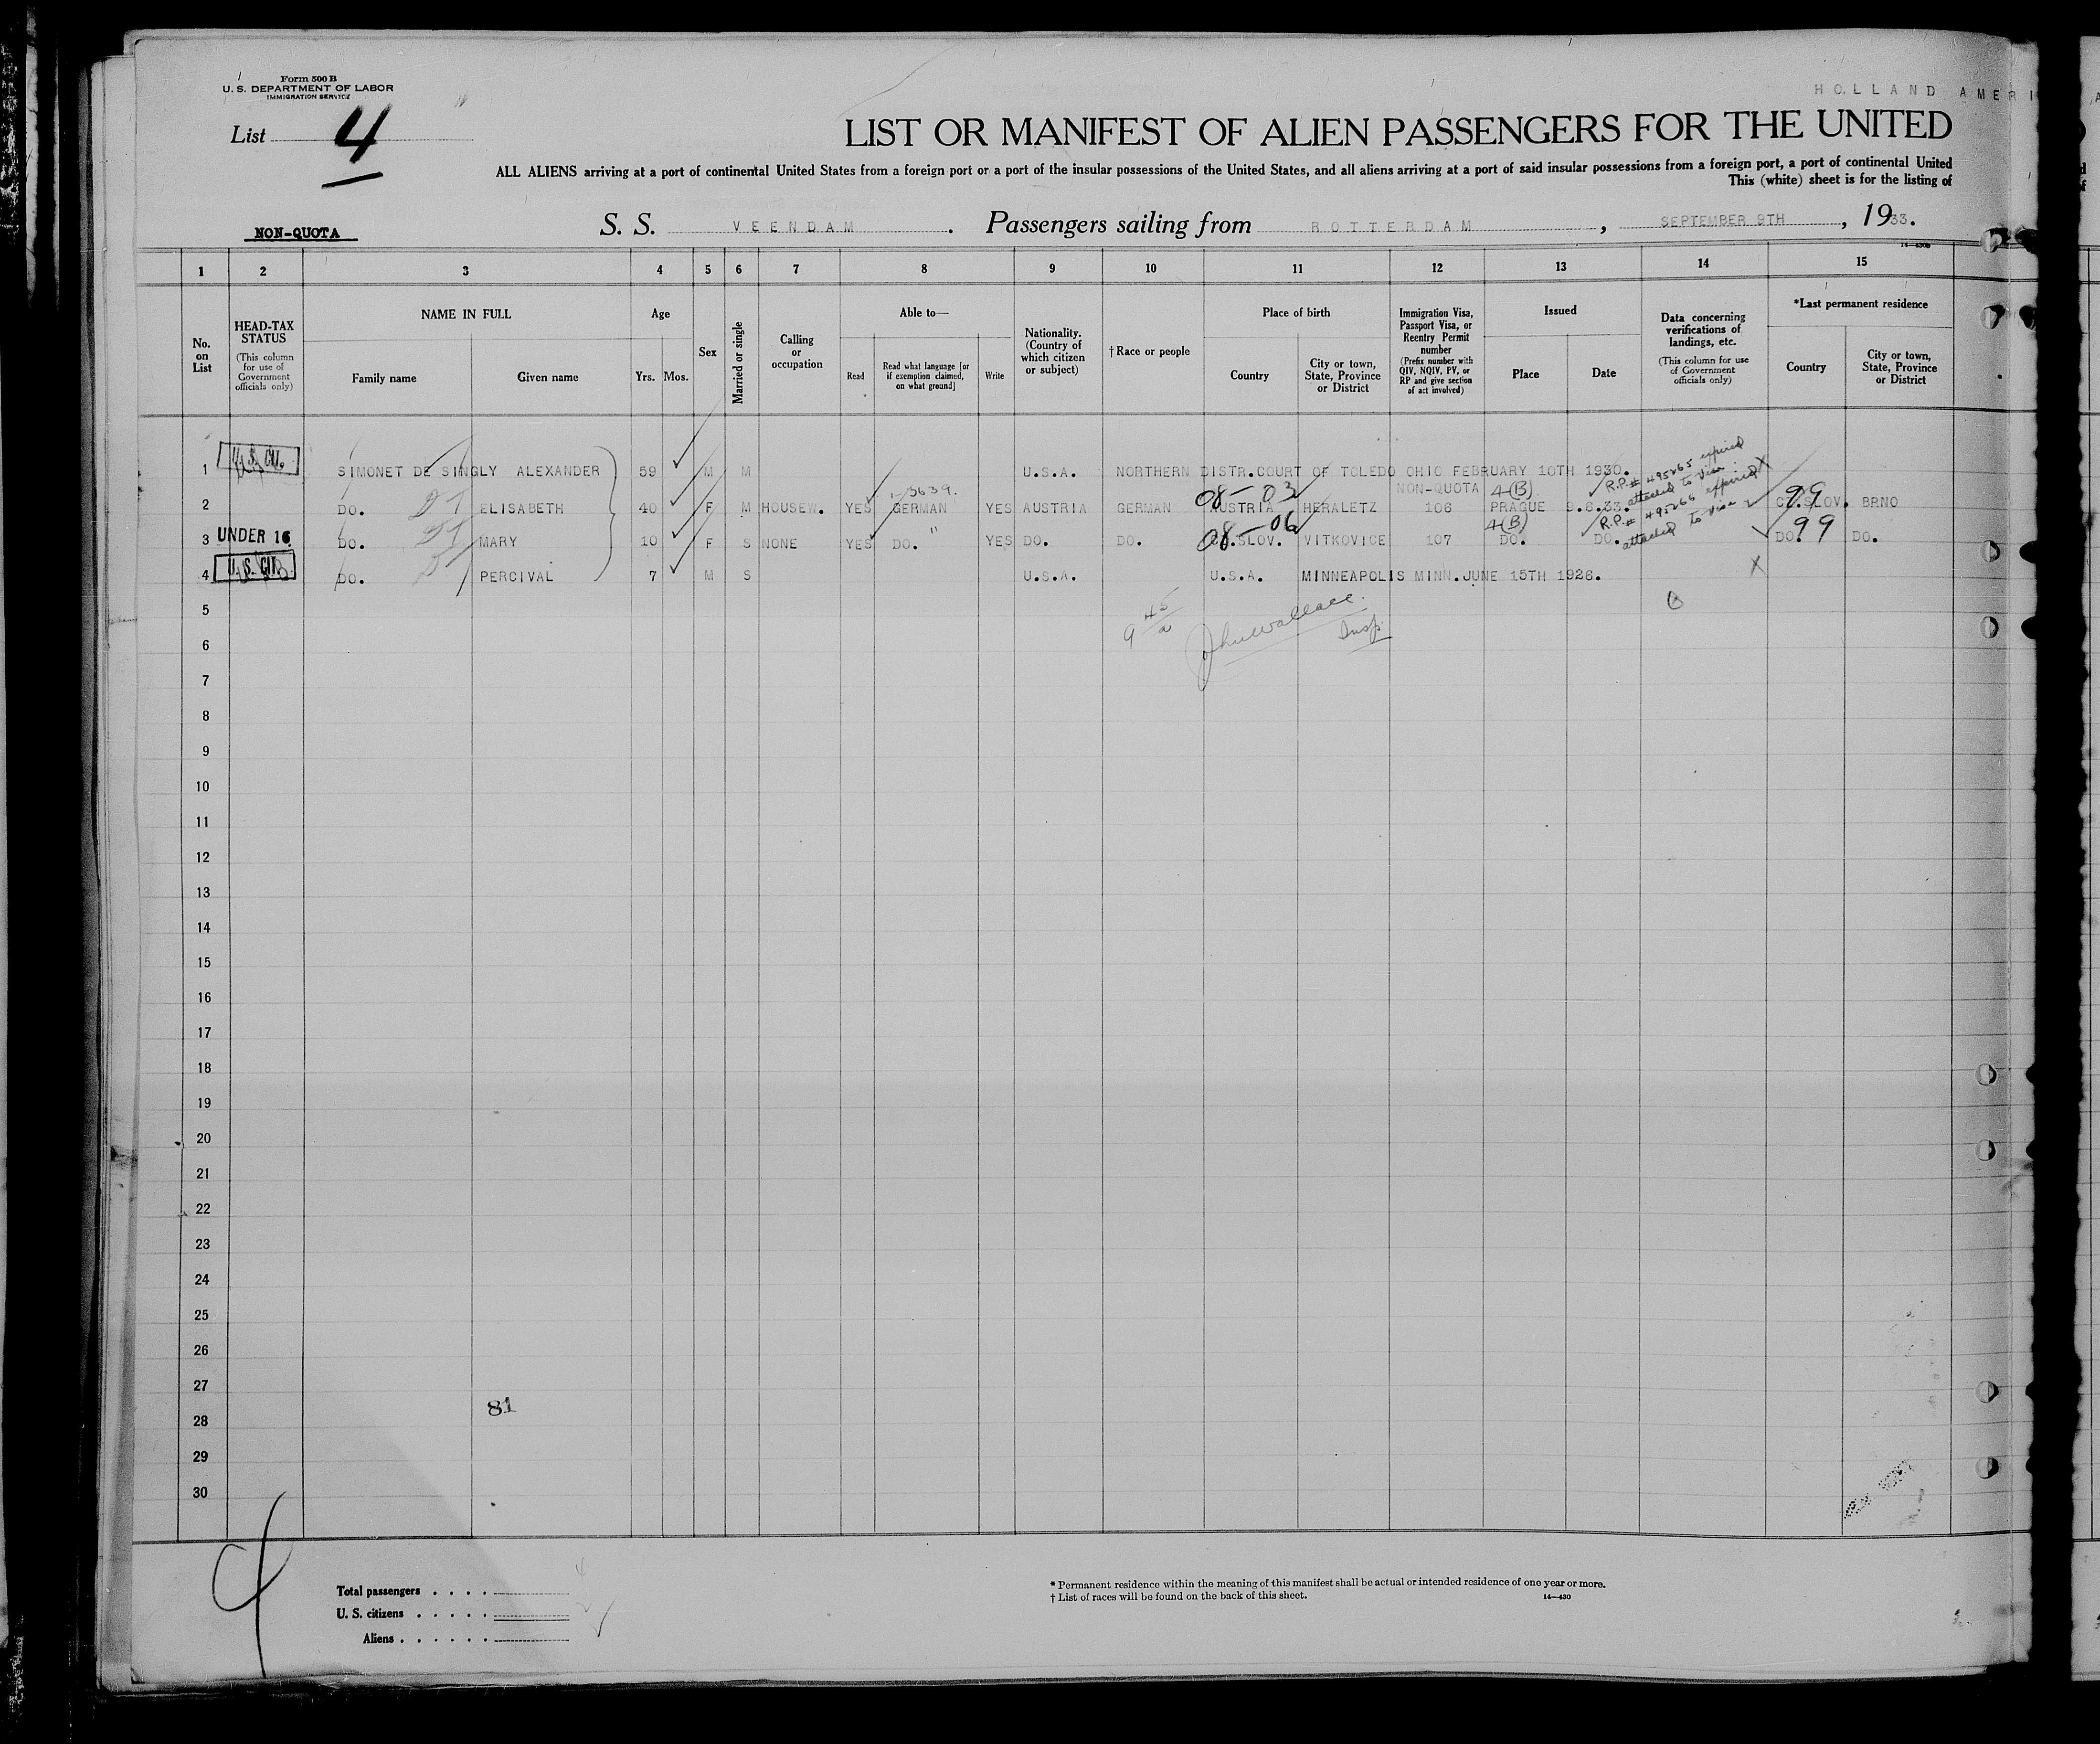 Form 500 B
U. S. DEPARTMENT OF LABOR
IMMIGRATION SERVICE
HOLLAND AMERI
List 4
LIST OR MANIFEST OF ALIEN PASSENGERS FOR THE UNITED
ALL ALIENS arriving at a port of continental United States from a foreign port or a port of the insular possessions of the United States, and all aliens arriving at a port of said insular possessions from a foreign port, a port of continental United
This (white) sheet is for the listing of
NON-QUOTA
S. S. VEENDAM. Passengers sailing from ROTTERDAM, SEPTEMBER 9TH, 1933.
1 2 3 4 5 6 7 8 9 10 11 12 13 14 15
No. on List
HEAD-TAX STATUS (This column for use of Government officials only)
NAME IN FULL
Family name
Given name
Age
Yrs. Mos.
Sex
Married or single
Calling or occupation
Able to—
Read
Read what language [or if exemption claimed, on what ground]
Write
Nationality. (Country of which citizen or subject)
† Race or people
Place of birth
Country
City or town, State, Province or District
Immigration Visa, Passport Visa, or Reentry Permit number (Prefix number with QIV, NQIV, PV, or RP and give section of act involved)
Issued
Place
Date
Data concerning verifications of landings, etc. (This column for use of Government officials only)
*Last permanent residence
Country
City or town, State, Province or District
1 U.S. CIT. SIMONET DE SINGLY ALEXANDER 59 M M U.S.A. NORTHERN DISTR.COURT OF TOLEDO OHIO FEBRUARY 10TH 1930.
R.P.# 495265 expired attached to visa
3639. 08-03 NON-QUOTA 4(B)
2 DO. ELISABETH 40 F M HOUSEW. YES GERMAN YES AUSTRIA GERMAN AUSTRIA HERALETZ 106 PRAGUE 9.6.33. 99 CZ.SLOV. BRNO
R.P.# 495266 expired attached to visa
UNDER 16 " 08-06 4(B)
3 DO. MARY 10 F S NONE YES DO. YES DO. DO. CZ.SLOV. VITKOVICE 107 DO. DO. DO. 99 DO.
4 U.S. CIT. DO. PERCIVAL 7 M S U.S.A. U.S.A. MINNEAPOLIS MINN.JUNE 15TH 1926.
5
9 45/a John Wallace. Insp.
6
7
8
9
10
11
12
13
14
15
16
17
18
19
20
21
22
23
24
25
26
27
81
28
29
30
Total passengers
U. S. citizens
Aliens
* Permanent residence within the meaning of this manifest shall be actual or intended residence of one year or more.
† List of races will be found on the back of this sheet.
14—430